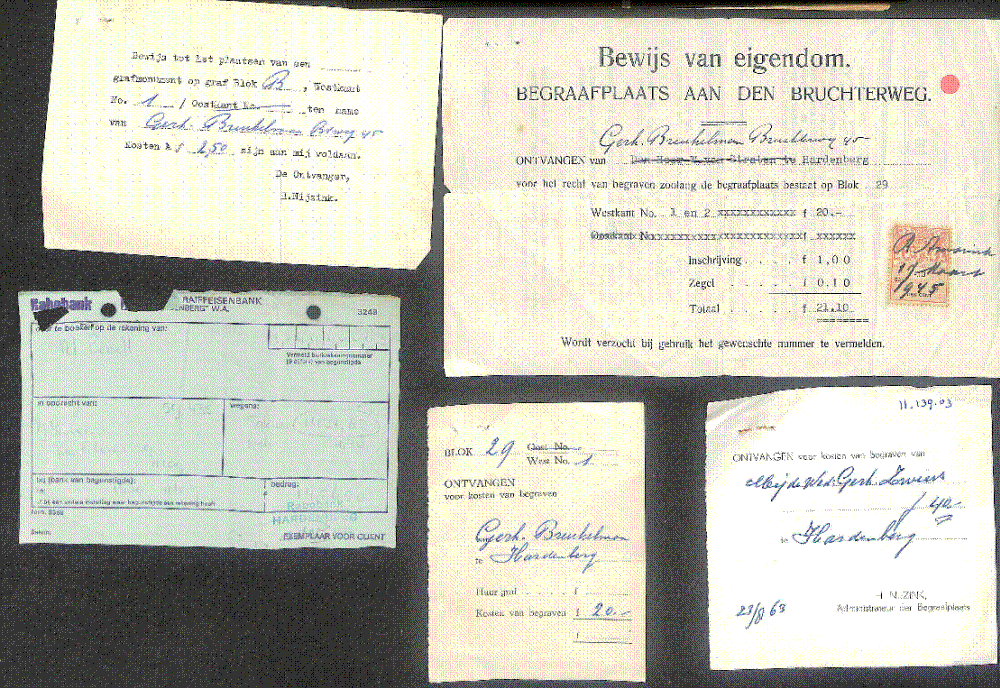 Bewijs tot het plaatsen van een
grafmonument op graf Blok B, Westkant
No. 1 / Oostkant No. ten name
van Gerh. Breukelman Brweg 45
Kosten à f 2,50 zijn aan mij voldaan.
De Ontvanger,
H.Nijzink.
Bewijs van eigendom.
BEGRAAFPLAATS AAN DEN BRUCHTERWEG.
Gerh. Breukelman Bruchterweg 45
ONTVANGEN van Den Heer te Hardenburg
voor het recht van begraven zoolang de begraafplaats bestaat op Blok 29
Westkant No. 1 en 2 xxxxxxxxxxxx f 20.-
Oostkant No xxxxxxxxxxxxxxxxxxxx f xxxxxx
Inschrijving . . . . f 1,00
Zegel . . . . . f 0.10
Totaal . . . . . f 21.10
Wordt verzocht bij gebruik het gewenschte nummer te vermelden.
17 Maart
1945
Rabobank
RAIFFEISENBANK
"HARDENBERG" W.A.
3248
over te boeken op de rekening van:
in opdracht van:
wegens:
bij (bank van begunstigde):
bedrag:
EXEMPLAAR VOOR CLIENT
BLOK 29 Oost No.
West No. 1
ONTVANGEN
voor kosten van begraven
Gerh. Breukelman
te Hardenberg
Huur graf . . . . . f
Kosten van begraven f 20.-
f
11.139.03
ONTVANGEN voor kosten van begraven van
Mej de Wed. Gerh. Zweers
f 40-
te Hardenberg
H. NIJZINK,
Administrateur der Begraafplaats
23/8 63